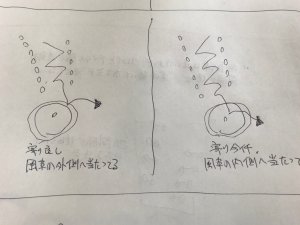 寄り
風車の外側へ当たってる
寄り
風車の内側へ当たって